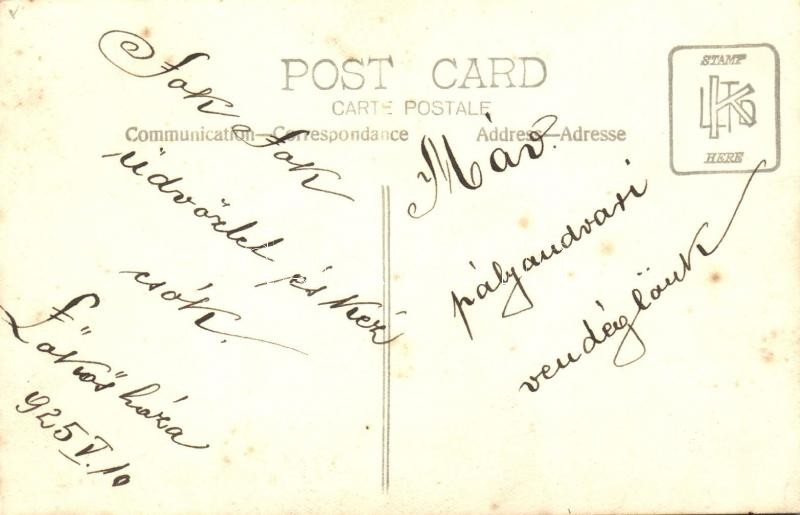 POST CARD
CARTE POSTALE
Communication—Correspondance
Address—Adresse
STAMP
HERE
Sok Sok
üdvözlet és kéz
csók.
Lőkösháza
925 V. 10
Máv.
pályaudvari
vendéglőnk